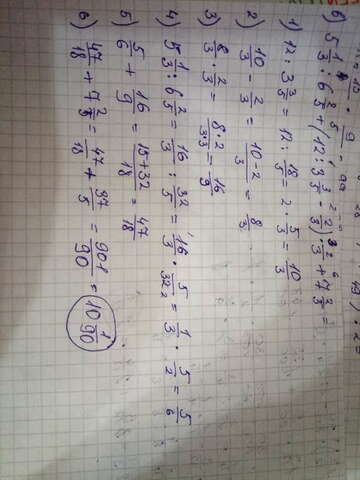 б) 5 1/3 : 6 2/5 + (12 : 3 3/5 - 2/3) · 2/3 + 7 2/5 =
1) 12 : 3 3/5 = 12 : 18/5 = 2 · 5/3 = 10/3
2) 10/3 - 2/3 = 10-2/3 = 8/3
3) 8/3 · 2/3 = 8·2/3·3 = 16/9
4) 5 1/3 : 6 2/5 = 16/3 : 32/5 = 16/3 · 5/32 = 1/3 · 5/2 = 5/6
5) 5/6 + 16/9 = 15+32/18 = 47/18
6) 47/18 + 7 2/5 = 47/18 + 37/5 = 901/90 = 10 1/90